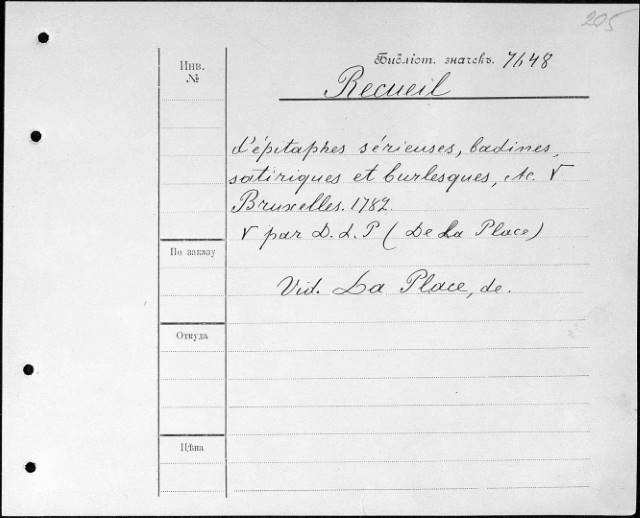 205
Инв.
№
Библіот. значекъ. 7648
Recueil
d'épitaphes sérieuses, badines,
satiriques et burlesques, etc. V
Bruxelles. 1782.
V par D. L. P (De La Place)
По заказу
Vid. La Place, de.
Откуда
Цѣна